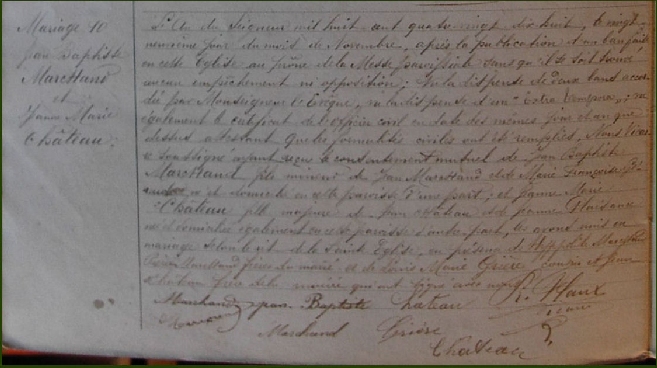 Mariage 10
Jean Baptiste
Marchand
et
Jeanne Marie
Château.
L'An du Seigneur mil huit cent quatre vingt dix huit, le vingt
neuvième jour du mois de Novembre, après la publication d'un ban faite
en cette Eglise au prône de la Messe paroissiale sans qu'il se soit trouvé
aucun empêchement ni opposition; Vu la dispense de deux bans accor
dée par Monseigneur l'Evêque, vu la dispense d'un Extra tempora; vu
également le certificat de l'officier civil en date des mêmes jour et an que
dessus attestant que les formalités civiles ont été remplies, Nous
soussigné ayant reçu le consentement mutuel de Jean Baptiste
Marchand fils mineur de Jean Marchand et de Marie Françoise
et domicilié en cette paroisse d'une part; et Jeanne Marie
Château fille majeure de Jean Château et de Jeanne Plaisance
et domiciliée également en cette paroisse d'autre part, les avons unis en
mariage selon le rit de la Sainte Eglise, en présence de Marchand
Marchand frères du marié, et de Louis Marie Grière cousin et Jean
Château frère de la mariée qui ont signé avec nous
Marchand Jean Baptiste Château
Marchand Grière
Château